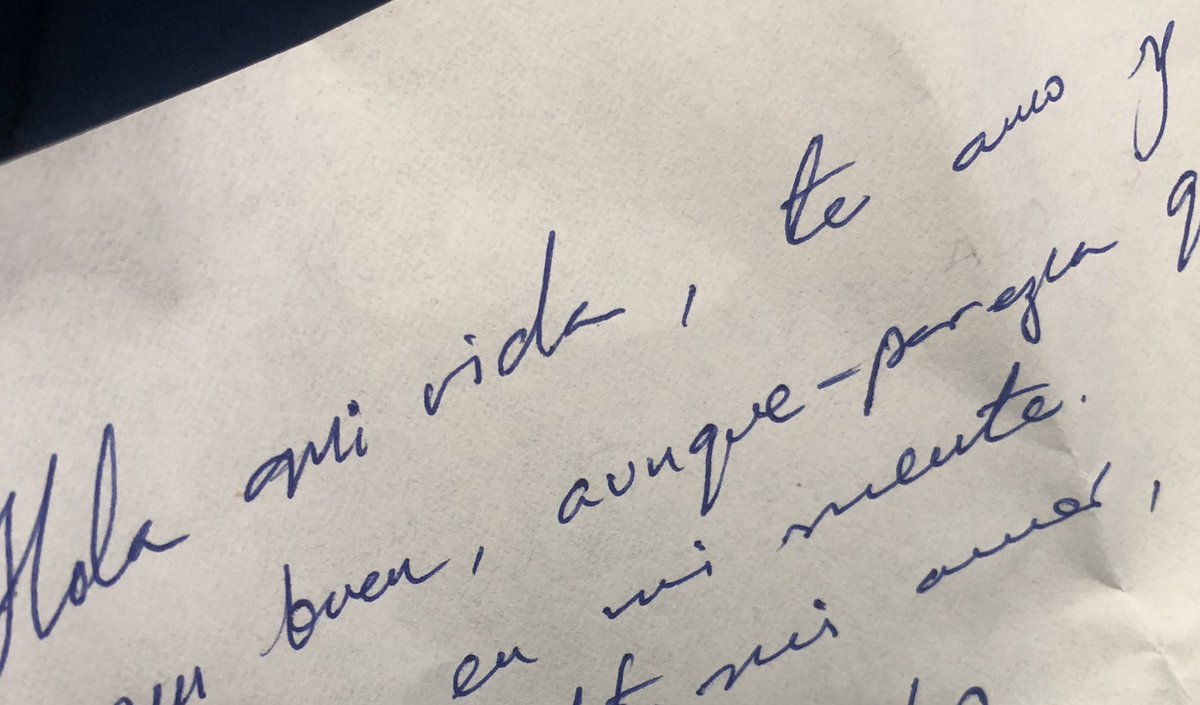 Hola mi vida, te amo y
buen, aunque-parezca q
en mi mente.
mi amor,